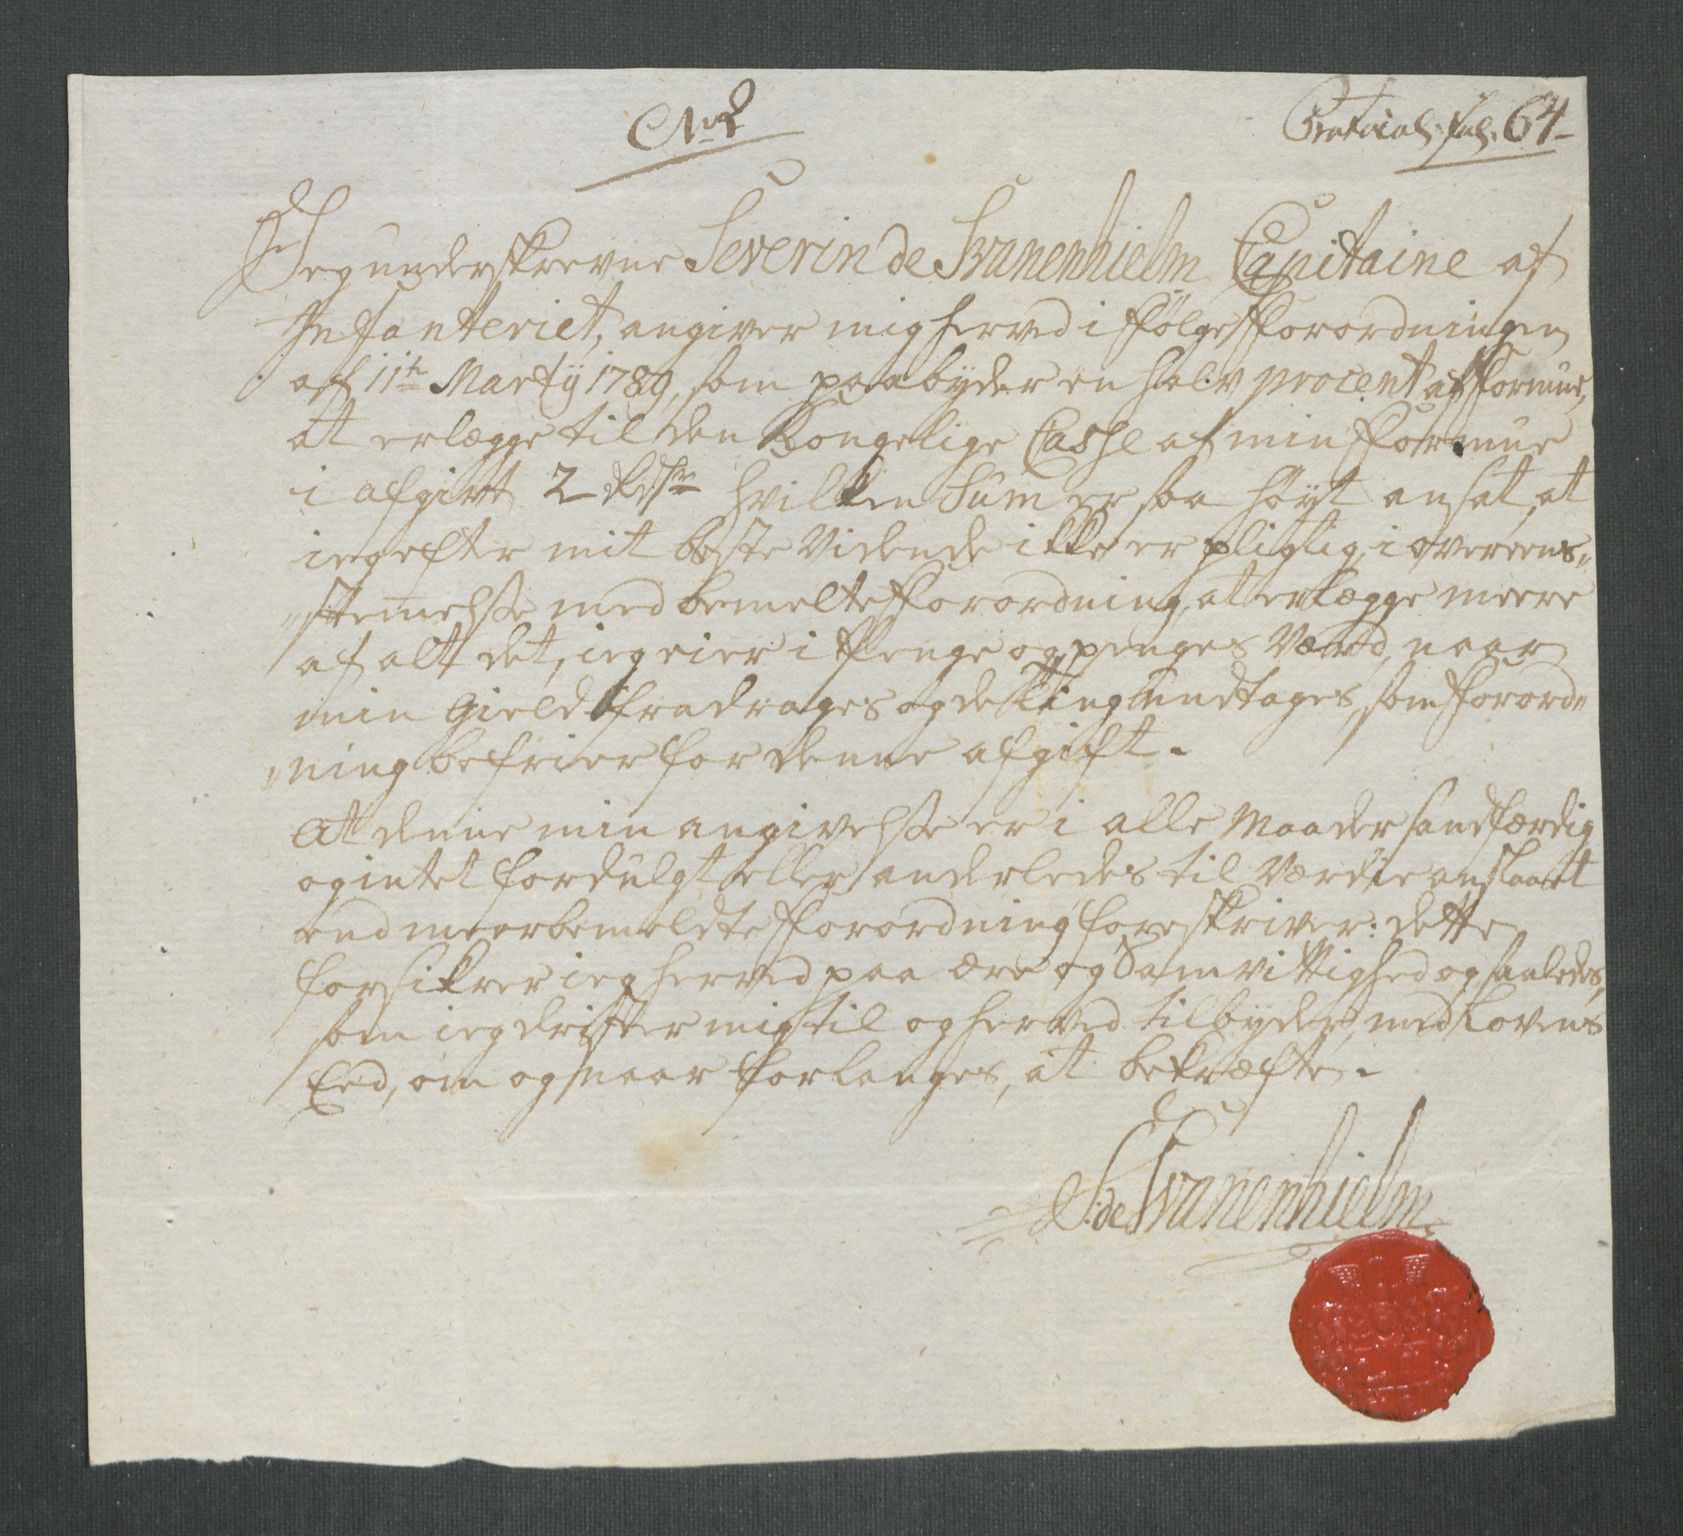 No 2
Protocol. fol. 64
Jeg underskrevne Severin de Svanenhielm Capitaine af
Infanteriet, angiver mig herved i Følge Forordningen
af 11te Martÿ 1789, som paabÿder en halv procent af Formue,
at erlægge til den Kongelige Casse af min Formue
i afgivt 2 Rdlr hvilken Sum er saa høÿt ansat, at
ieg efter mit beste Vidende ikke er pligtig, i overeens„
„stemelsse med bemelte Forordning, at erlægge meere
af alt det, ieg eier i Penge og penges Værd, naar
min Gield fradrages og de Ting undtages, som Forord„
„ning befrier for denne afgift.
At denne min angivelsse er i alle Maader sandfærdig
og intet fordulgt eller anderledes til Værdie anslaaet
end meerbemeldte Forordning foreskriver: dette
forsikrer ieg herved paa ære og Samvittighed og saaledes,
som ieg drister mig til og herved tilbÿder, med Lovens
Eed, om og naar forlanges, at bekræfte.
S: de Svanenhielm